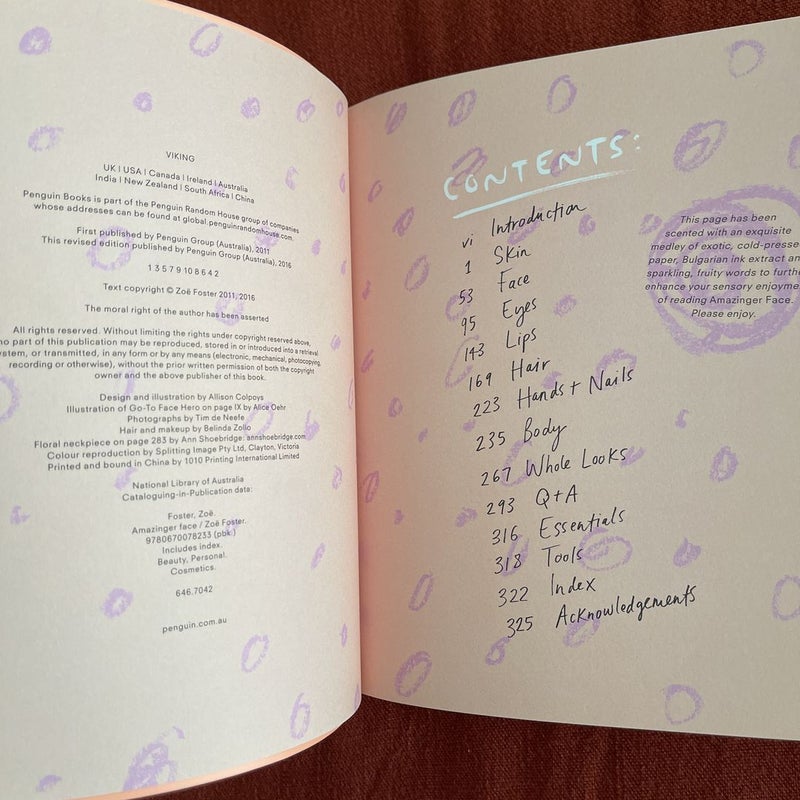 VIKING
UK | USA | Canada | Ireland | Australia
India | New Zealand | South Africa | China
Penguin Books is part of the Penguin Random House group of companies
whose addresses can be found at global.penguinrandomhouse.com.
First published by Penguin Group (Australia), 2011
This revised edition published by Penguin Group (Australia), 2016
1 3 5 7 9 10 8 6 4 2
Text copyright © Zoë Foster 2011, 2016
The moral right of the author has been asserted
All rights reserved. Without limiting the rights under copyright reserved above,
no part of this publication may be reproduced, stored in or introduced into a retrieval
system, or transmitted, in any form or by any means (electronic, mechanical, photocopying,
recording or otherwise), without the prior written permission of both the copyright
owner and the above publisher of this book.
Design and illustration by Allison Colpoys
Illustration of Go-To Face Hero on page IX by Alice Oehr
Photographs by Tim de Neefe
Hair and makeup by Belinda Zollo
Floral neckpiece on page 283 by Ann Shoebridge: annshoebridge.com
Colour reproduction by Splitting Image Pty Ltd, Clayton, Victoria
Printed and bound in China by 1010 Printing International Limited
National Library of Australia
Cataloguing-in-Publication data:
Foster, Zoë.
Amazinger face / Zoë Foster.
9780670078233 (pbk)
Includes index.
Beauty, Personal.
Cosmetics.
646.7042
penguin.com.au
CONTENTS:
vi Introduction
1 Skin
53 Face
95 Eyes
143 Lips
169 Hair
223 Hands + Nails
235 Body
267 Whole Looks
293 Q+A
316 Essentials
318 Tools
322 Index
325 Acknowledgements
This page has been
scented with an exquisite
medley of exotic, cold-presse
paper, Bulgarian ink extract an
sparkling, fruity words to furthe
enhance your sensory enjoyme
of reading Amazinger Face.
Please enjoy.